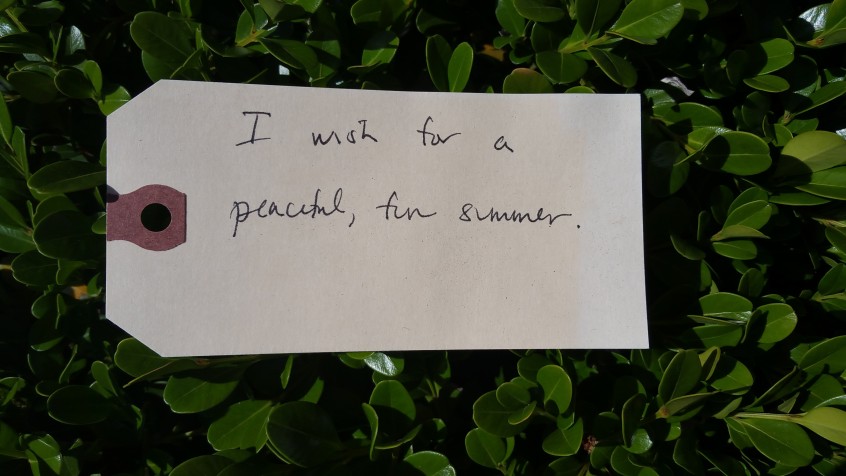 I wish for a
peaceful, fun summer.